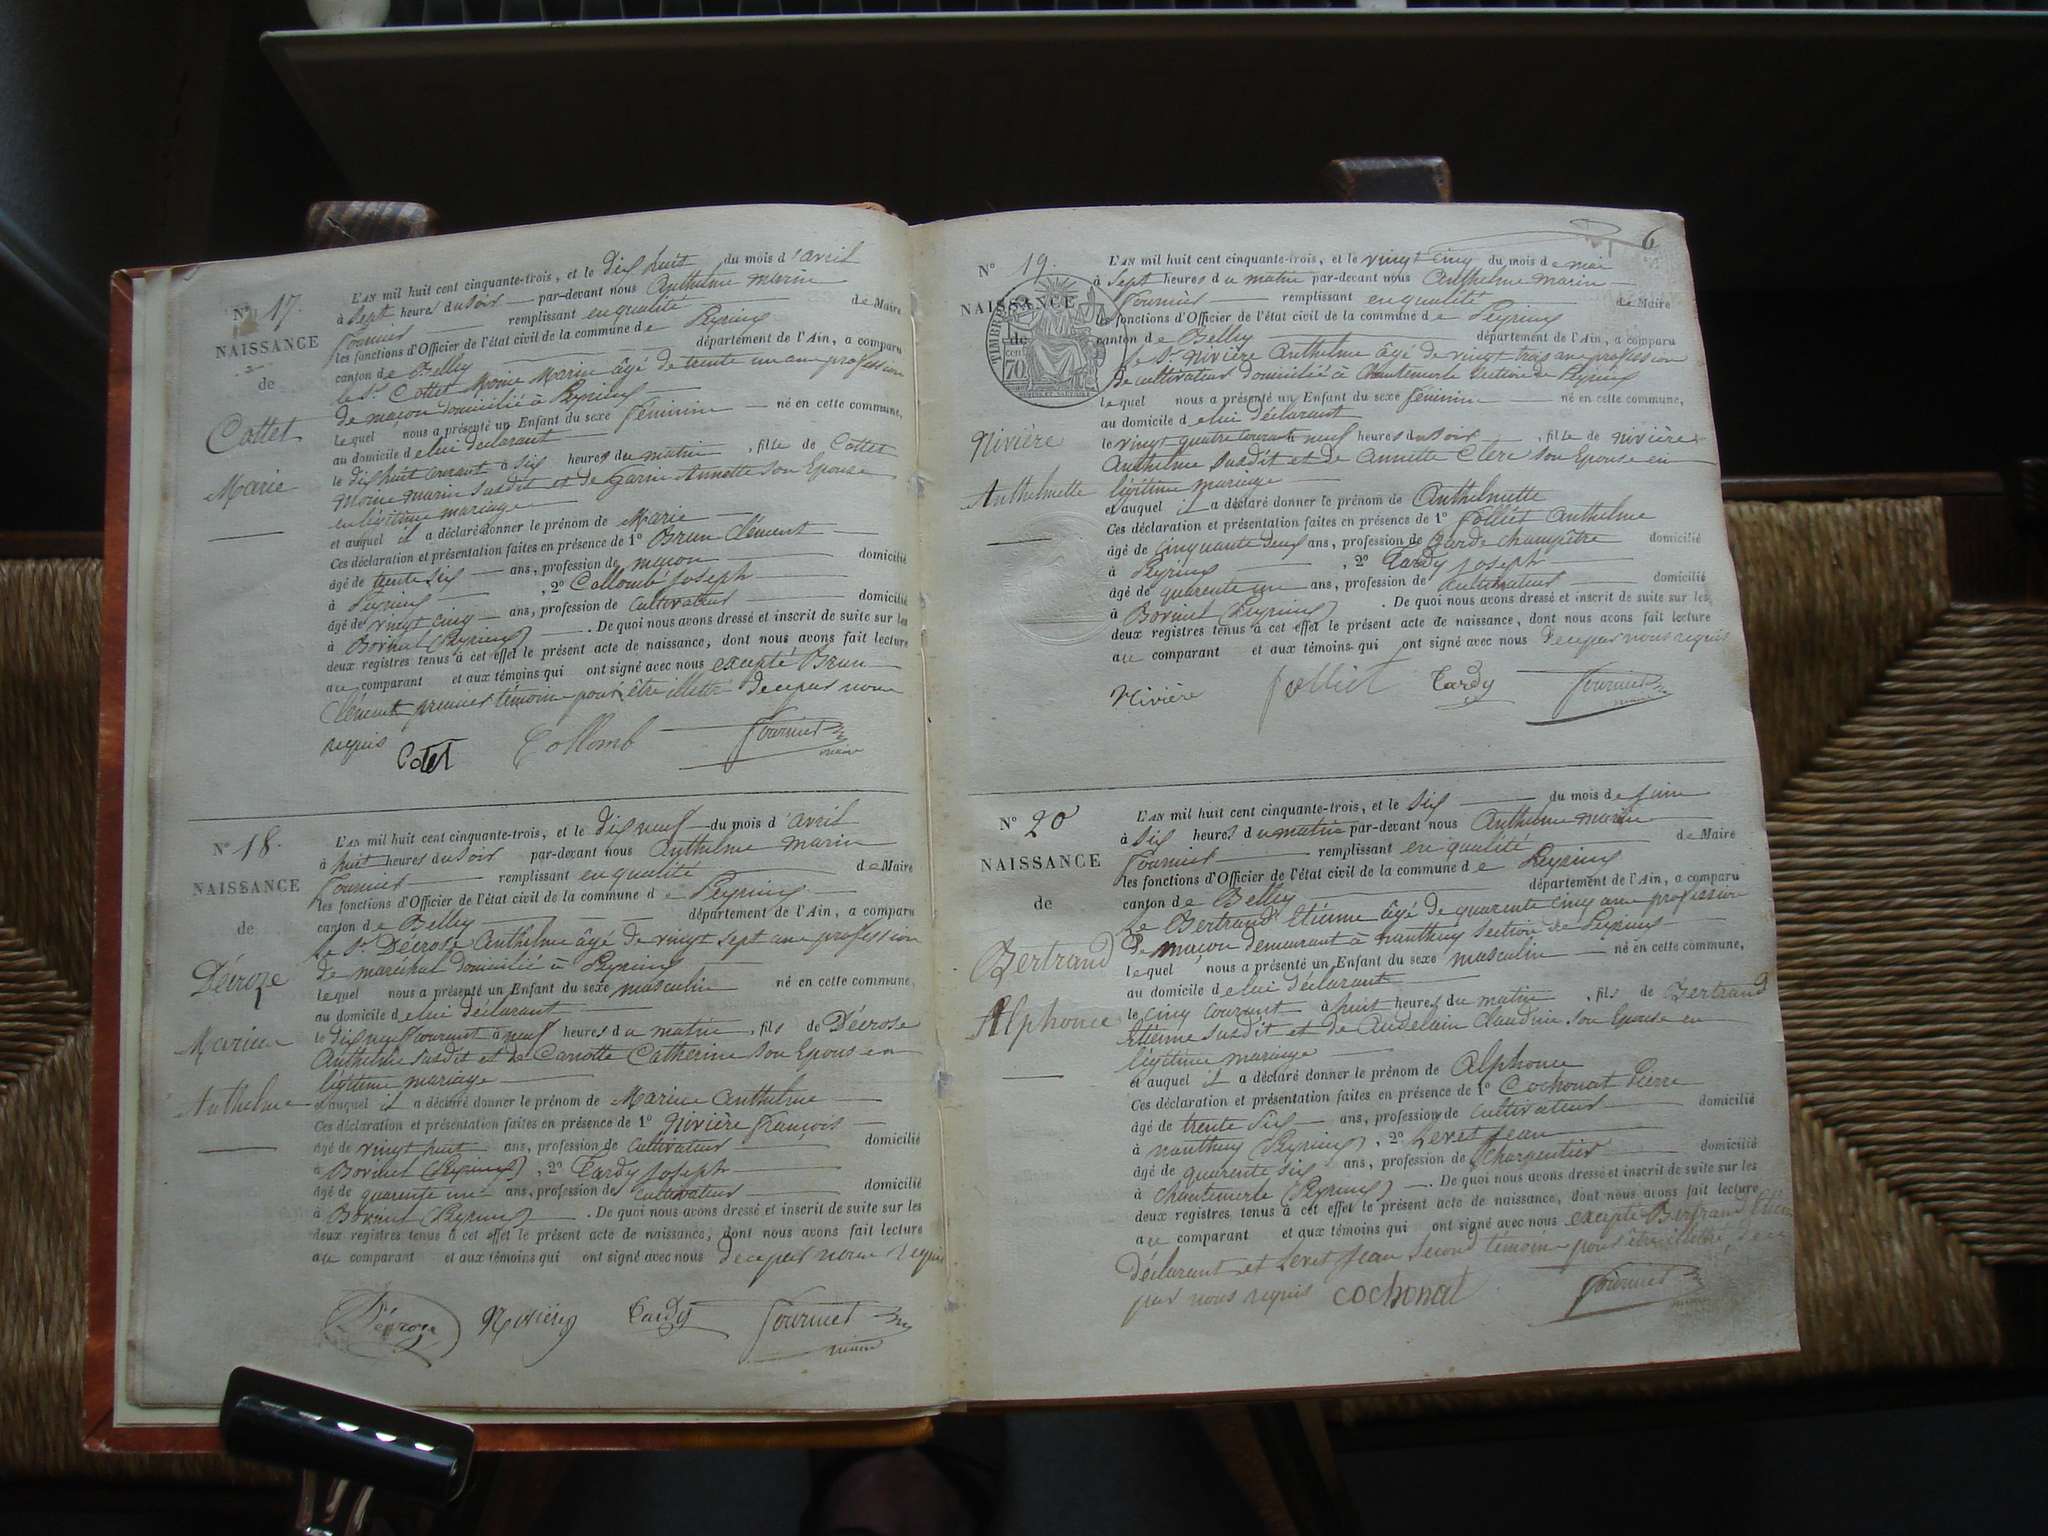 N° 17.
NAISSANCE
de
Cottet
Marie
L'AN mil huit cent cinquante-trois, et le dix huit du mois d'avril
à sept heures du soir par-devant nous Anthelme marin
Fournier remplissant en qualité de Maire
les fonctions d'Officier de l'état civil de la commune de Peyrieu
canton de Belley département de l'Ain, a comparu
le Sr Cottet Moine Marin âgé de trente un ans profession
de maçon domicilié à Peyrieu
lequel nous a présenté un Enfant du sexe féminin né en cette commune,
au domicile de lui déclarant
le dix huit courant à six heures du matin, fille de Cottet
Moine marin susdit et de Garin Annette son Epouse
en légitime mariage
et auquel il a déclaré donner le prénom de Marie
Ces déclaration et présentation faites en présence de 1° Brun Clément
âgé de trente six ans, profession de maçon domicilié
à Peyrieu, 2° Collomb Joseph
âgé de vingt cinq ans, profession de cultivateur domicilié
à Borinet (Peyrieu). De quoi nous avons dressé et inscrit de suite sur les
deux registres tenus à cet effet le présent acte de naissance, dont nous avons fait lecture
au comparant et aux témoins qui ont signé avec nous excepté Brun
Clément premier témoin pour être illettré de ce par nous
requis
Cotet Collomb Fournier
maire
N° 18.
NAISSANCE
de
Décroze
Marius
Anthelme
L'AN mil huit cent cinquante-trois, et le dix neuf du mois d'avril
à huit heures du soir par-devant nous Anthelme marin
Fournier remplissant en qualité de Maire
les fonctions d'Officier de l'état civil de la commune de Peyrieu
canton de Belley département de l'Ain, a comparu
le Sr Décrose Anthelme âgé de vingt sept ans profession
de maréchal domicilié à Peyrieu
lequel nous a présenté un Enfant du sexe masculin né en cette commune,
au domicile de lui déclarant
le dix neuf courant à neuf heures du matin, fils de Décrose
Anthelme susdit et de Catherine son Epouse en
légitime mariage
et auquel il a déclaré donner le prénom de Marius Anthelme
Ces déclaration et présentation faites en présence de 1° Nivière françois
âgé de vingt huit ans, profession de cultivateur domicilié
à Borinet (Peyrieu), 2° Tardy Joseph
âgé de quarente un ans, profession de cultivateur domicilié
à Borinet (Peyrieu). De quoi nous avons dressé et inscrit de suite sur les
deux registres tenus à cet effet le présent acte de naissance, dont nous avons fait lecture
au comparant et aux témoins qui ont signé avec nous de ce par nous requis
Décroze Nivière Tardy Fournier
maire
6
N° 19.
NAISSANCE
de
TIMBRE
70
Nivière
Anthelmette
L'AN mil huit cent cinquante-trois, et le vingt cinq du mois de mai
à sept heures du matin par-devant nous Anthelme marin
Fournier remplissant en qualité de Maire
les fonctions d'Officier de l'état civil de la commune de Peyrieu
canton de Belley département de l'Ain, a comparu
le Sr Nivière Anthelme âgé de vingt trois ans profession
de cultivateur domicilié à Chantemerle section de Peyrieu
lequel nous a présenté un Enfant du sexe féminin né en cette commune,
au domicile de lui déclarant
le vingt quatre courant à neuf heures du soir, fille de Nivière
Anthelme susdit et de Annette Clerc son Epouse en
légitime mariage
et auquel il a déclaré donner le prénom de Anthelmette
Ces déclaration et présentation faites en présence de 1° Folliet Anthelme
âgé de cinquante deux ans, profession de Garde champêtre domicilié
à Peyrieu, 2° Tardy Joseph
âgé de quarente un ans, profession de cultivateur domicilié
à Borinet (Peyrieu). De quoi nous avons dressé et inscrit de suite sur les
deux registres tenus à cet effet le présent acte de naissance, dont nous avons fait lecture
au comparant et aux témoins qui ont signé avec nous de ce par nous requis
Nivière folliet Tardy Fournier
maire
N° 20
NAISSANCE
de
Bertrand
Alphonce
L'AN mil huit cent cinquante-trois, et le six du mois de juin
à six heures du matin par-devant nous Anthelme marin
Fournier remplissant en qualité de Maire
les fonctions d'Officier de l'état civil de la commune de Peyrieu
canton de Belley département de l'Ain, a comparu
Le Bertrand Etienne âgé de quarente cinq ans profession
de maçon demeurant à nanthuy section de Peyrieu
lequel nous a présenté un Enfant du sexe masculin né en cette commune,
au domicile de lui déclarant
le cinq courant à huit heures du matin, fils de Bertrand
Etienne susdit et de Claudine son Epouse en
légitime mariage
et auquel il a déclaré donner le prénom de Alphonce
Ces déclaration et présentation faites en présence de 1° Cochonat Pierre
âgé de trente six ans, profession de cultivateur domicilié
à nanthuy (Peyrieu), 2° Levet Jean
âgé de quarente six ans, profession de charpentier domicilié
à chantemerle (Peyrieu). De quoi nous avons dressé et inscrit de suite sur les
deux registres tenus à cet effet le présent acte de naissance, dont nous avons fait lecture
au comparant et aux témoins qui ont signé avec nous excepté Bertrand Etienne
déclarant et Levet Jean second témoin pour être illettré de ce
par nous requis cochonat Fournier
maire